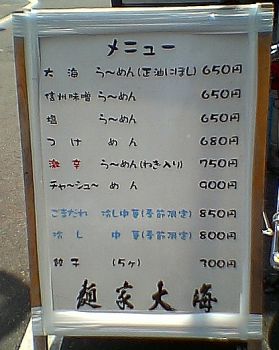 メニュー
大海 ら〜めん(正油にぼし) 650円
信州味噌 ら〜めん 650円
塩 ら〜めん 650円
つけ めん 680円
激辛 ら〜めん(ねぎ入り) 750円
チャーシュー めん 900円
ごまだれ 冷し中華(季節限定) 850円
冷し 中華(季節限定) 800円
餃子 (5ヶ) 300円
麺家大海